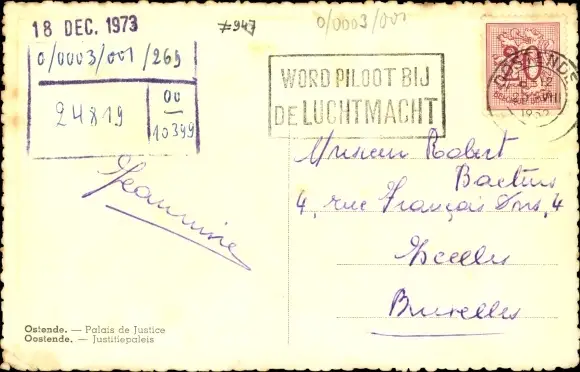 18 DEC. 1973
≠947
0/0003/001
0/0003/001/269
24819
00
10399
WORD PILOOT BIJ
DE LUCHTMACHT
20
OOSTENDE
Monsieur Robert
4, rue François Dons, 4
Jeannine
Ixelles
Bruxelles
Ostende. — Palais de Justice
Oostende. — Justitiepaleis